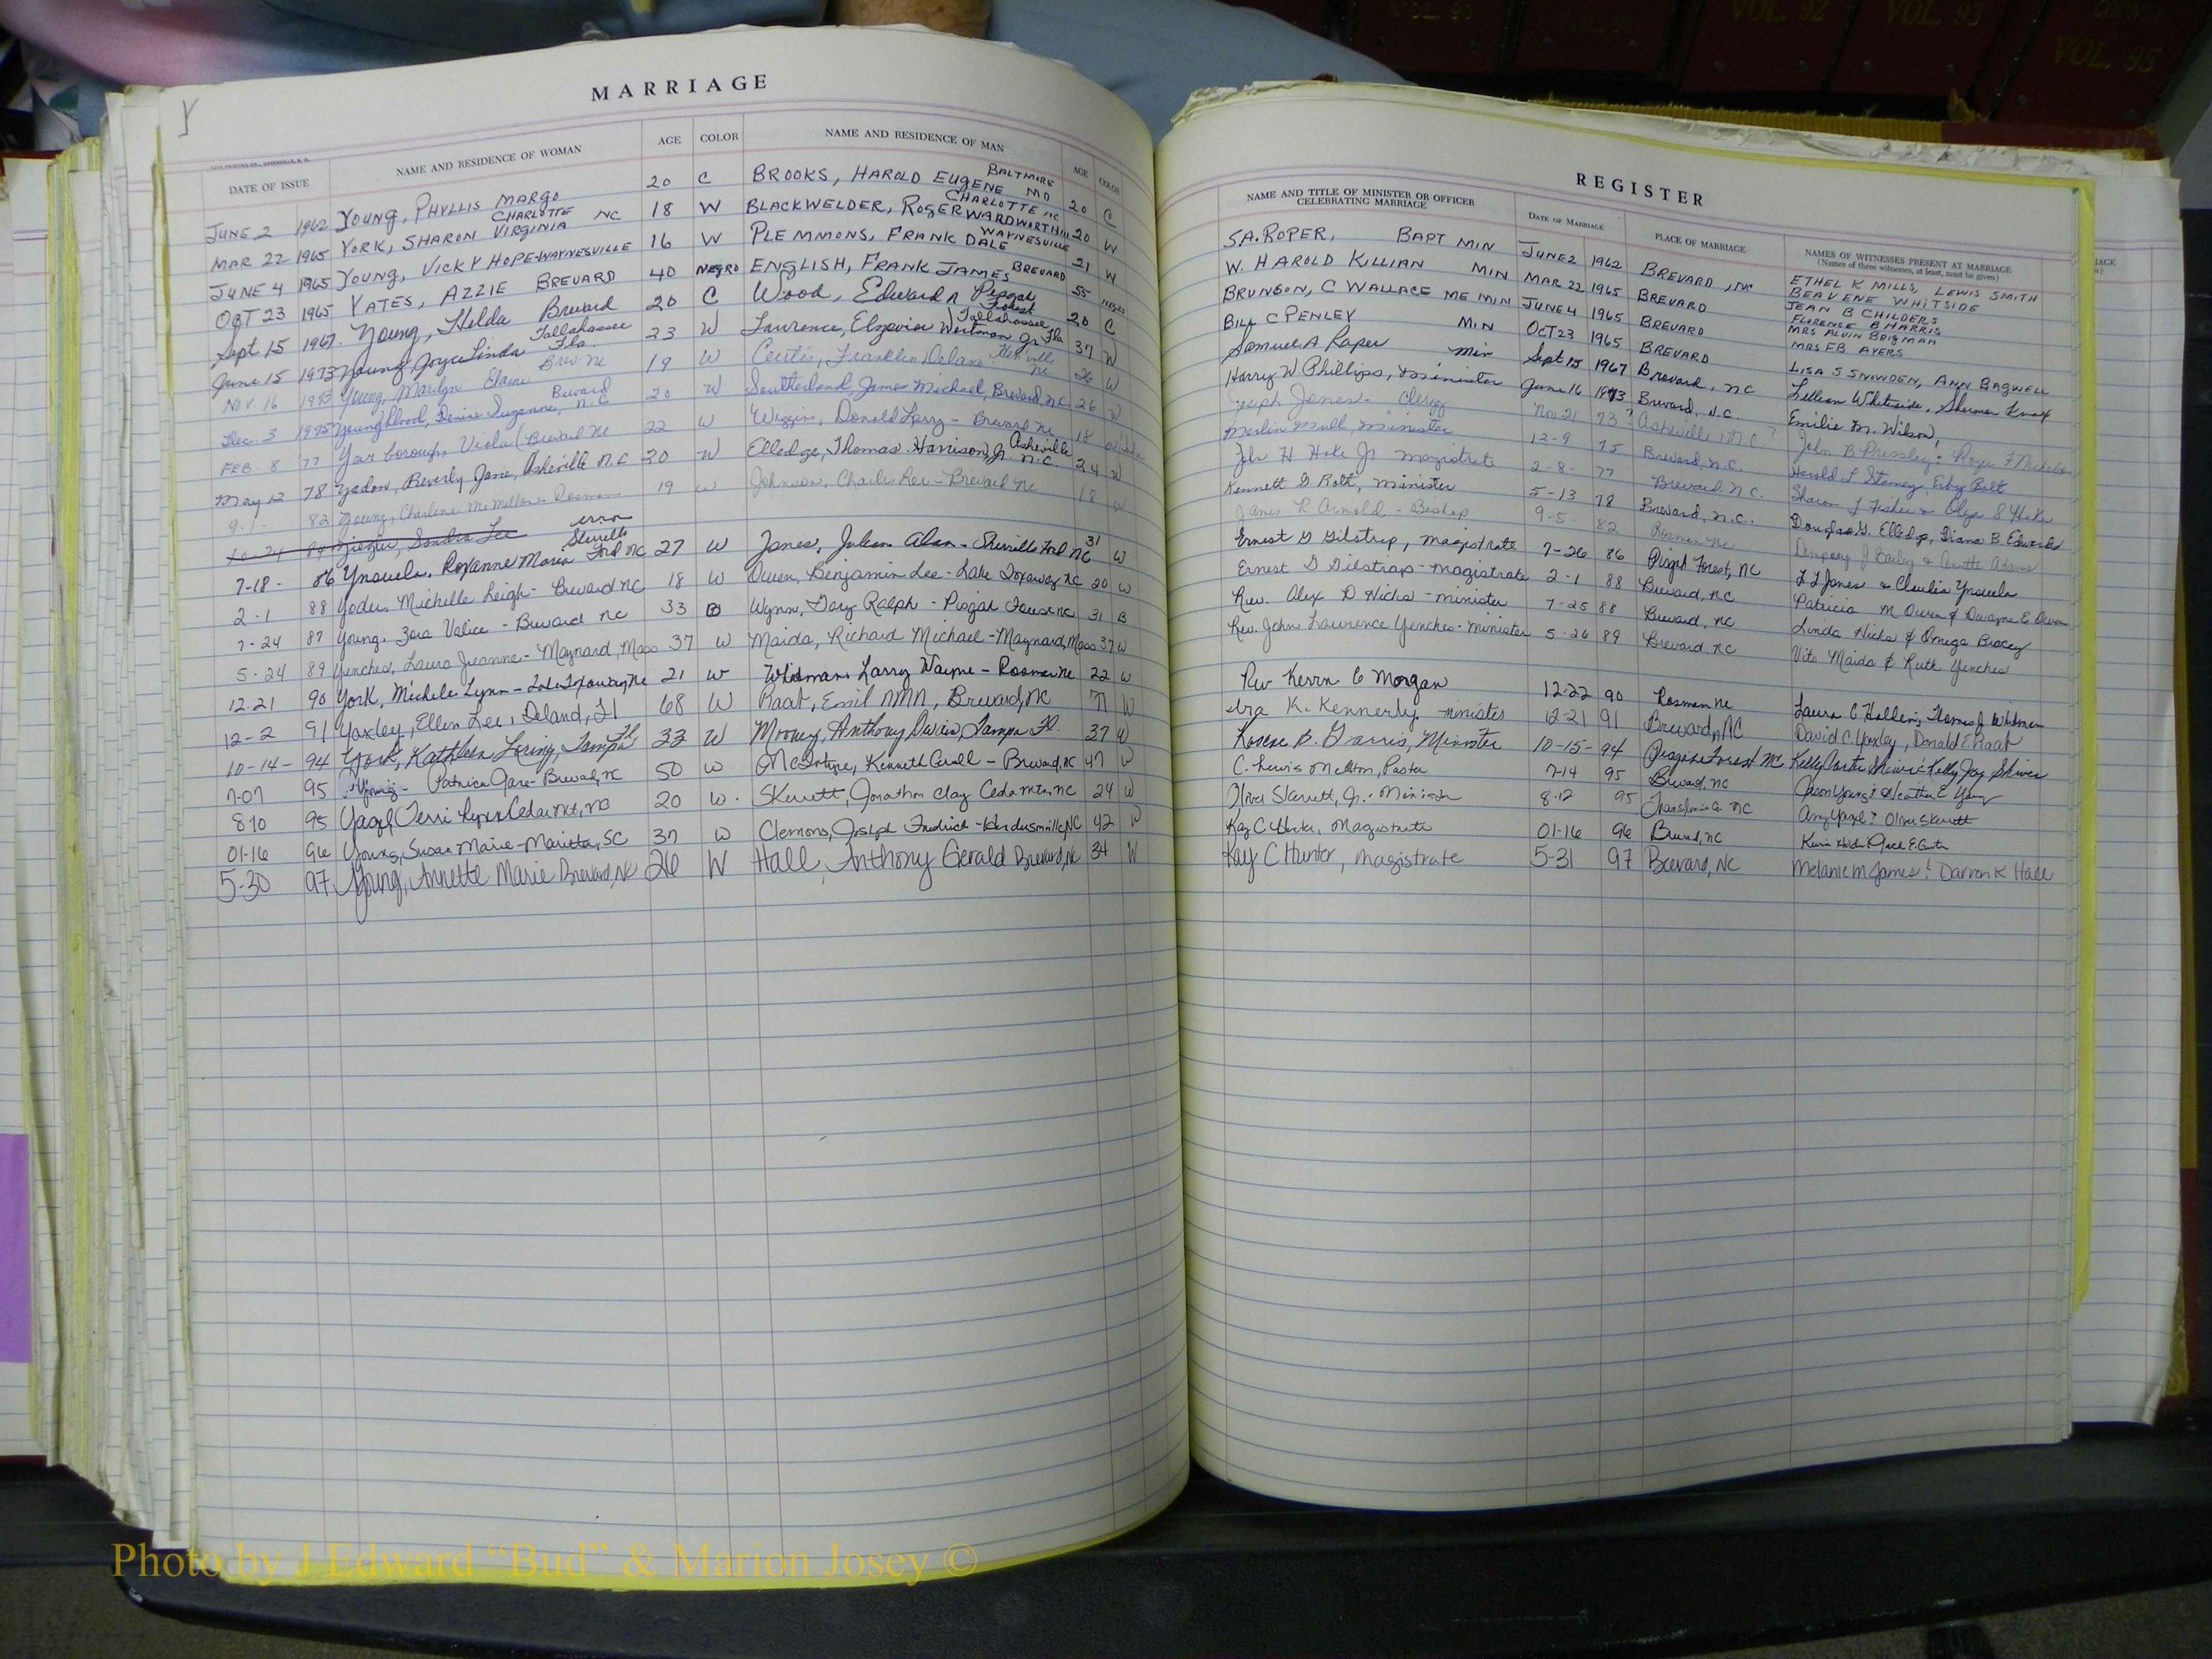 VOL. 92
VOL. 93
VOL. 95
Y
MARRIAGE
DATE OF ISSUE NAME AND RESIDENCE OF WOMAN AGE COLOR NAME AND RESIDENCE OF MAN AGE COLOR
JUNE 2 1962 YOUNG, PHYLLIS MARGO 20 C BROOKS, HAROLD EUGENE BALTIMORE MD 20 C
MAR 22 1965 YORK, SHARON VIRGINIA CHARLOTTE NC 18 W BLACKWELDER, ROGER WARDWORTH CHARLOTTE NC 20 W
JUNE 4 1965 YOUNG, VICKY HOPE-WAYNESVILLE 16 W PLEMMONS, FRANK DALE WAYNESVILLE 21 W
OCT 23 1965 YATES, AZZIE BREVARD 40 NEGRO ENGLISH, FRANK JAMES BREVARD 55
Sept. 15 1967. Young, Hilda Brevard 20 C Wood, Edward Pisgah Forest 20 C
June 15 1973 Young Joyce Linda Tallahassee Fla. 23 W Lawrence, Weitman Jr Tallahassee Fla 37 W
Nov. 16 1973 Young, Marilyn Elaine Brev. NC 19 W Curtis, Franklin Delano NC 26 W
Dec. 3 1975 Youngblood, Denise Suzanne, Brevard N.C. 20 W Southerland, James Michael, Brevard, N.C. 26 W
FEB. 8 '77 Yarborough, Viola (Brevard NC 22 W Wiggins, Donald Larry - Brevard NC 18
May 12 78 Yadon, Beverly Jane, Asheville N.C 20 W Elledge, Thomas Harrison, Jr. Asheville N.C. 24 W
9-1- 82 Young, Charlene McMellon - Rosman 19 W Johnson, Charles - Brevard NC 18 W
10-24 Ziegler, Sandra Lee error
7-18- 86 Ynsuela, Roxanne Maria Sherrills Ford NC 27 W Jones, Julian Alan - Sherrills Ford NC 31 W
2-1 88 Yoder, Michelle Leigh - Brevard NC 18 W Owen, Benjamin Lee - Lake Toxaway NC 20 W
7-24 87 Young, Zora Valice - Brevard NC 33 B Wynn, Gary Ralph - Pisgah Forest NC 31 B
5-24 89 Yenches, Laura Jeanne - Maynard, Mass 37 W Maida, Richard Michael - Maynard, Mass 37 W
12-21 90 York, Michele Lynn - Lake Toxaway NC 21 W Whitman Larry Wayne - Rosman NC 22 W
12-2 91 Yaxley, Ellen Lee, Deland, Fl 68 W Raat, Emil NMN, Brevard, NC 71 W
10-14- 94 York, Kathleen Loring, Tampa Fl. 33 W Mooney, Anthony Tampa Fl. 37 W
7-07 95 Young - Patricia - Brevard, NC 50 W McIntyre, Kenneth - Brevard, NC 47 W
8-10 95 Yagel, Terri Lynn Cedar Mtn, NC 20 W. Skerrett, Jonathan Clay Cedar Mtn, NC 24 W
01-16 96 Young, Susan Marie - Marietta, SC 37 W Clemons, Joseph Fredrick - Hendersonville, NC 42 W
5-30 97 Young, Annette Marie Brevard, NC 26 W Hall, Anthony Gerald Brevard, NC 34 W
REGISTER
NAME AND TITLE OF MINISTER OR OFFICER CELEBRATING MARRIAGE DATE OF MARRIAGE PLACE OF MARRIAGE NAMES OF WITNESSES PRESENT AT MARRIAGE
(Names of three witnesses, at least, must be given)
S.A. ROPER, BAPT MIN JUNE 2 1962 BREVARD, NC ETHEL K MILLS, LEWIS SMITH
W. HAROLD KILLIAN MIN MAR 22 1965 BREVARD BEAVENE WHITSIDE JEAN B CHILDERS
BRUNSON, C WALLACE ME MIN JUNE 4 1965 BREVARD FLORENCE B HARRIS MRS ALVIN BRIGMAN
BILL C PENLEY MIN OCT 23 1965 BREVARD MRS FB AYERS
Samuel A Raper min Sept 15 1967 Brevard, NC LISA S SNOWDEN, ANN BAGWELL
Harry W. Phillips, minister June 16 1973 Brevard, N.C. Lillian Whiteside, Sherman Knox
Joseph Jones - Clergy Nov. 21 73 ? Asheville, NC ? Emilie M. Wilson,
Merlin minister 12-9 75 Brevard, N.C. John B Pressley
John H Hake Jr magistrate 2-8- 77 Brevard, N.C. Harold L
Kennett D Roth, minister 5-13 78 Brevard, N.C. Douglas G. Elledge, Diana B. Edwards
James R Arnold - Bishop 9-5 82 Rosman NC
Ernest G Gilstrap, magistrate 7-26 86 Pisgah Forest, NC
Ernest G Gilstrap - magistrate 2-1 88 Brevard, NC Patricia M Owen & Dwayne E. Owen
Rev. Alex D Hicks - minister 7-25 88 Brevard, NC Linda Hicks & Omega Bracey
Rev. John Lawrence Yenches - Minister 5-26 89 Brevard NC Vito Maida & Ruth Yenches
Rev Kevin C Morgan 12-22 90 Rosman NC
Ira K. Kennerly minister 12-21 91 Brevard, NC David C. Yaxley, Donald E. Raat
Roscoe B. Garris, Minister 10-15-94 Pisgah Forest NC
C. Lewis Melton, Pastor 7-14 95 Brevard, NC Jason Young & Heather E Young
Oliver Skerrett, Jr. - Minister 8-12 95 NC Amy Yagel & Oliver Skerrett
Kay C Hunter, Magistrate 01-16 96 Brevard, NC
Kay C Hunter, magistrate 5-31 97 Brevard, NC Melanie M James & Darren K Hall
Photo by J Edward “Bud” & Marion Josey ©